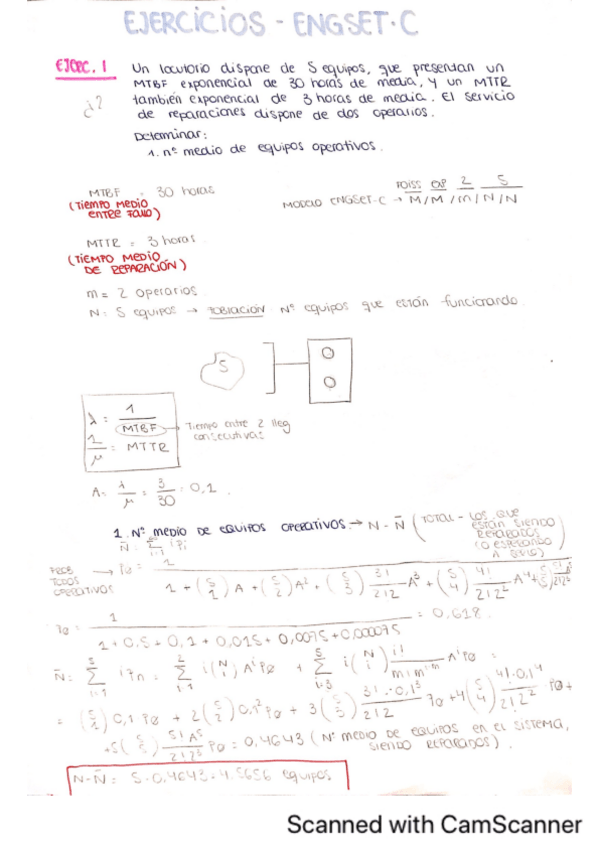 EJERCICIOS - ENGSET-C
EJERC. 1 Un locutorio dispone de 5 equipos, que presentan un
MTBF exponencial de 30 horas de media, y un MTTR
también exponencial de 3 horas de media. El servicio
¿? de reparaciones dispone de dos operarios.
Determinar:
1. nº medio de equipos operativos.
MTBF = 30 horas
(TIEMPO MEDIO ENTRE FALLO)
POISS exp 2 5
MODELO ENGSET-C → M/M/m/N/N
MTTR = 3 horas
(TIEMPO MEDIO DE REPARACIÓN)
m = 2 operarios
N = 5 equipos → POBLACIÓN Nº equipos que están funcionando
5
λ = 1/MTBF → Tiempo entre 2 lleg consecutivas
1/μ = MTTR
A = λ/μ = 3/30 = 0,1.
1. Nº MEDIO DE EQUIPOS OPERATIVOS → N - N̄ (TOTAL - LOS QUE ESTÁN SIENDO REPARADOS (O ESPERANDO A SERLO))
N̄ = Σ i Pi
PROB TODOS OPERATIVOS → P0 = 1 / 1 + (5 1) A + (5 2) A² + (5 3) 3!/2!2 A³ + (5 4) 4!/2!2² A⁴ + (5 5) 5!/2!2³ A⁵
P0 = 1 / 1 + 0.5 + 0,1 + 0,015 + 0,0075 + 0,00075 = 0,618
N̄ = Σ i Pn = Σ i (N i) A^i P0 + Σ i (N i) i!/m! m^i-m A^i P0 =
= (5 1) 0,1 P0 + 2 (5 2) 0,1² P0 + 3 (5 3) 3!·0,1³/2!2 P0 + 4 (5 4) 4!·0,1⁴/2!2² P0 +
+ 5 (5 5) 5! A⁵/2!2³ P0 = 0,4643 (Nº MEDIO DE EQUIPOS EN EL SISTEMA, SIENDO REPARADOS).
N - N̄ = 5 - 0,4643 = 4,5656 equipos
Scanned with CamScanner